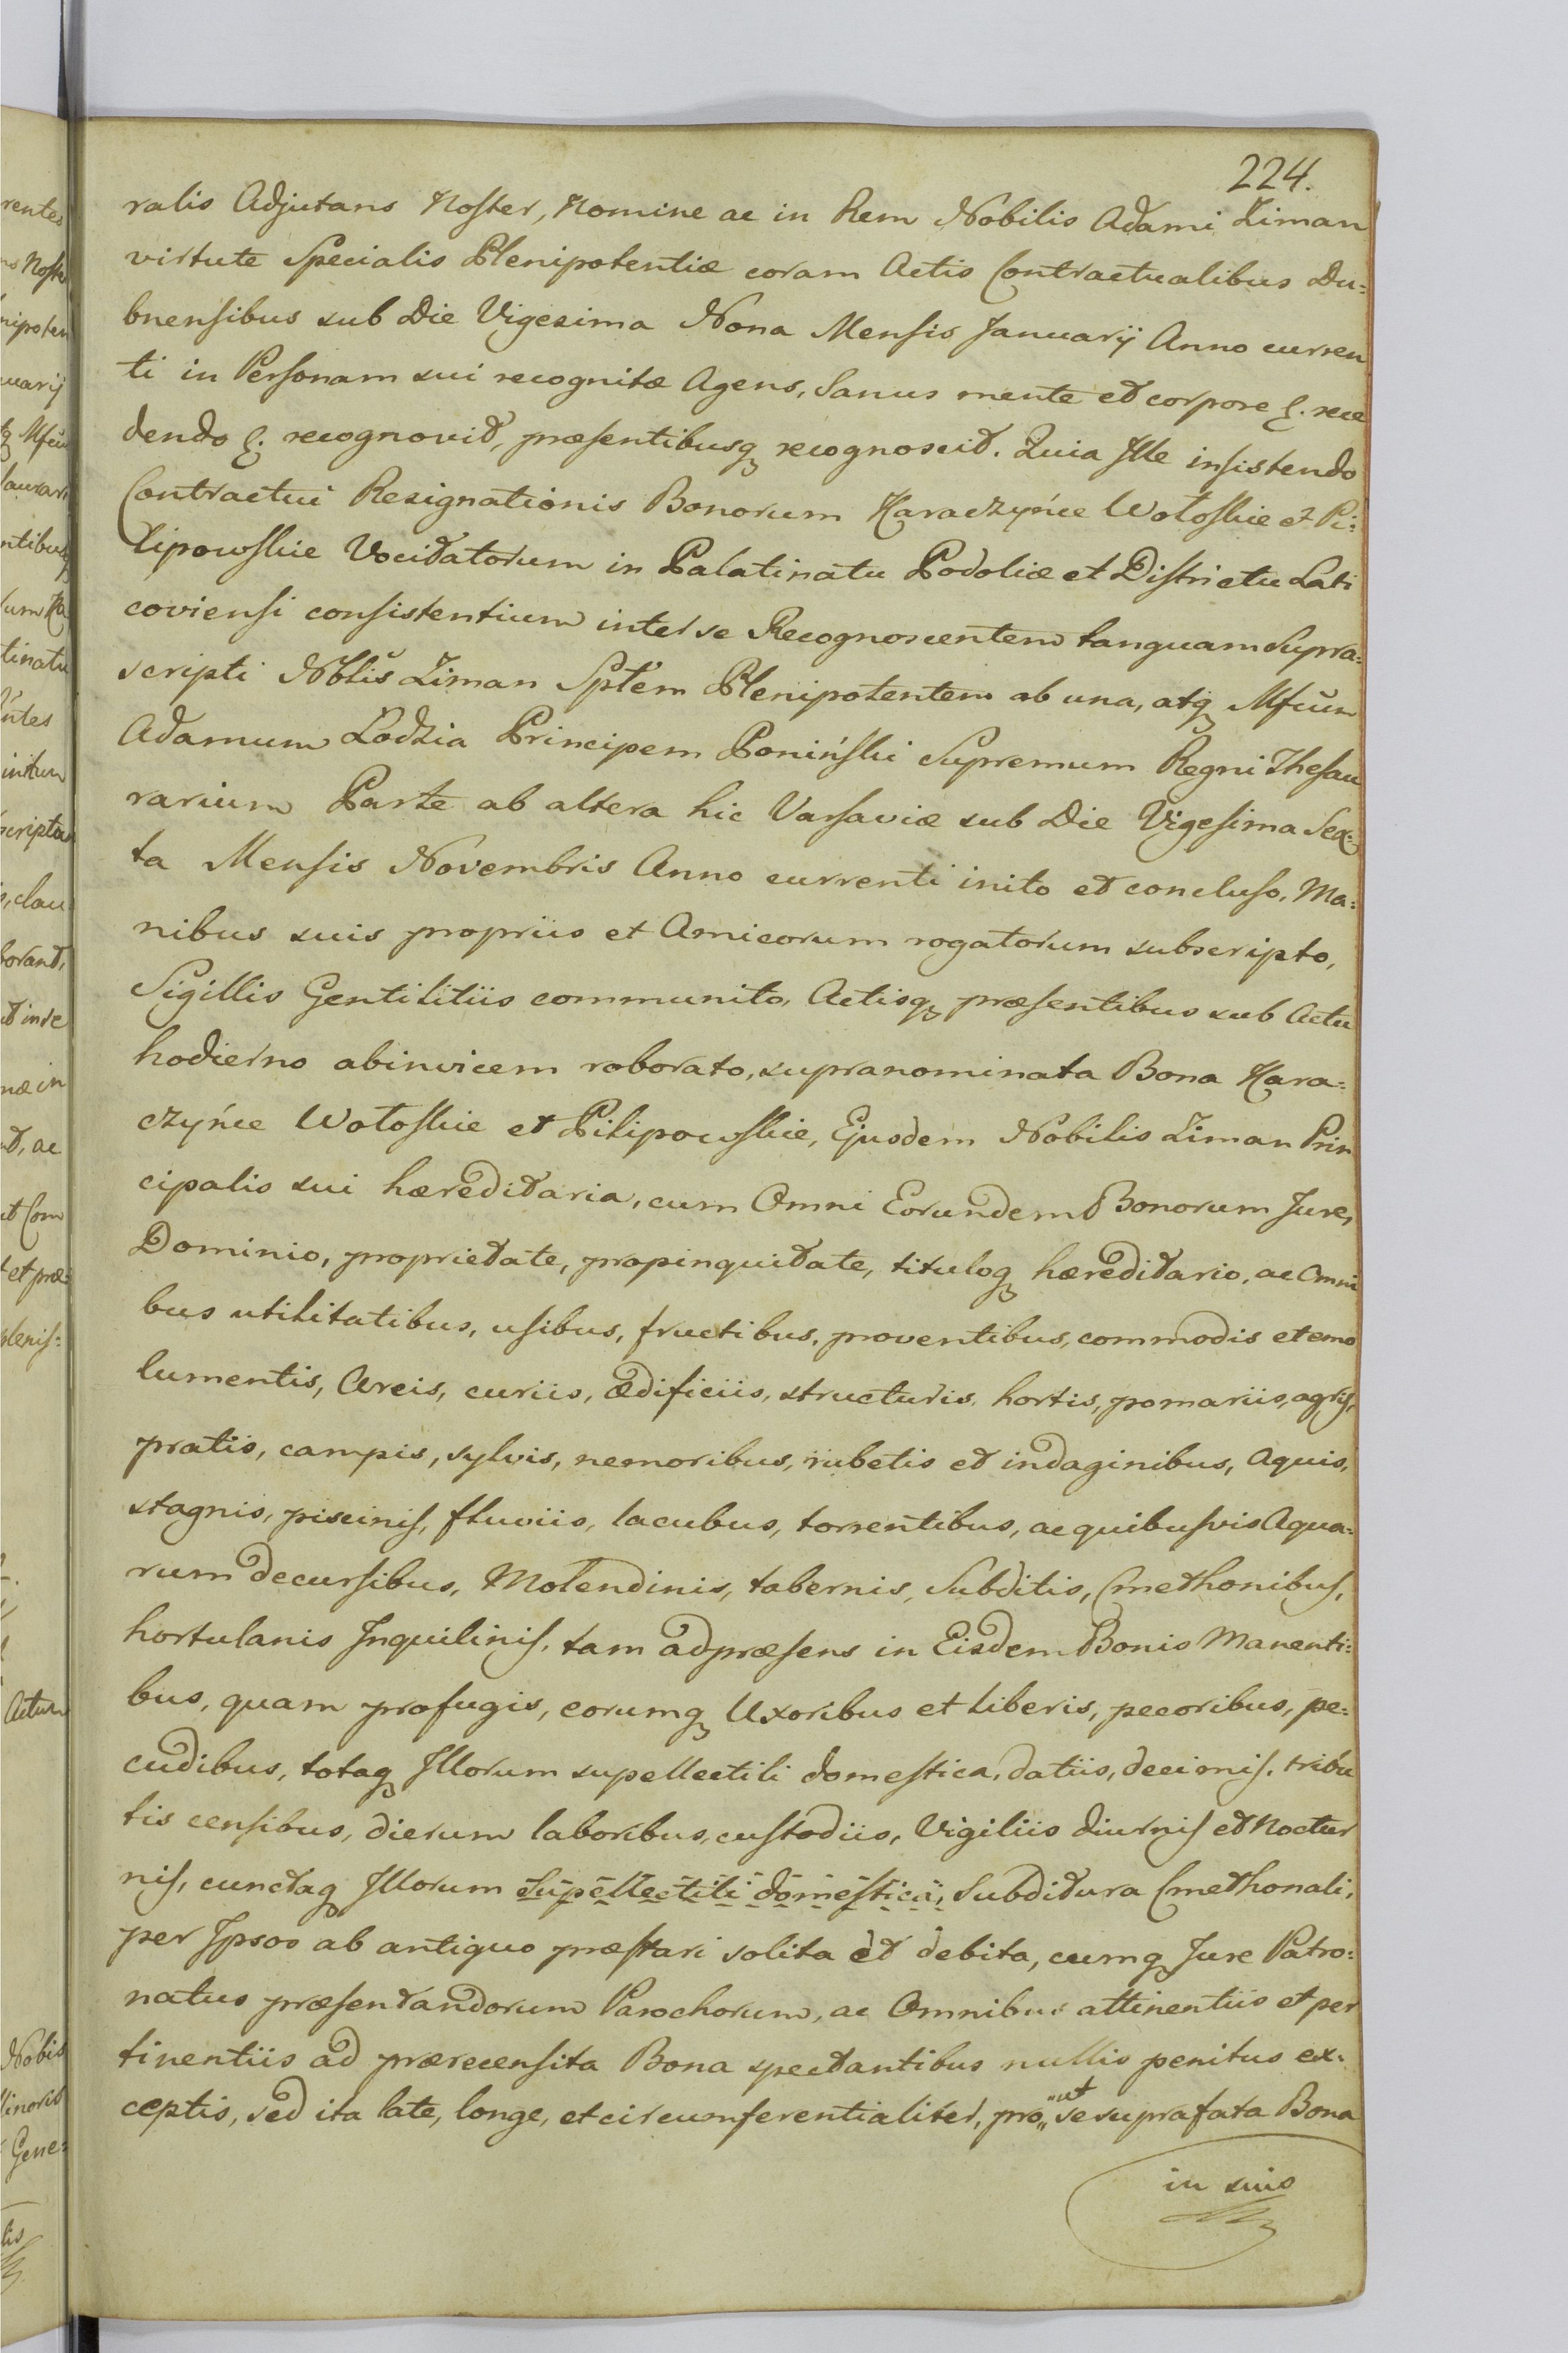 224.
ralis Adjutans Noster, Nomine ac in Rem Nobilis Adami Ziman
virtute Specialis Plenipotentiæ coram Actis Contractualibus Du=
bnensibus sub Die Vigesima Nona Mensis Januarij Anno curren
ti in Personam sui recognitæ Agens, Sanus mente et corpore &. rece
dendo &. recognovit, præsentibusq recognoscit. Quia Ille insistendo
Contractui Resignationis Bonorum Karaczyńce Wołoskie et Pi=
lipowskie Vocitatorum in Palatinatu Podoliæ et Districtu Lati
coviensi consistentium inter se Recognoscentem tanquam Supra=
scripti Nblis Ziman Splem Plenipotentem ab una, atq Mfcum
Adamum Łodzia Principem Poniński Supremum Regni Thesau
rarium Parte ab altera hic Varsaviæ sub Die Vigesima Sex=
ta Mensis Novembris Anno currenti inito et concluso, Ma=
nibus suis propriis et Amicorum rogatorum subscripto,
Sigillis Gentilitiis communito, Actisq præsentibus sub Actu
hodierno abinvicem roborato, supranominata Bona Kara=
czyńce Wołoskie et Pilipowskie, Ejusdem Nobilis Ziman Prin
cipalis sui hæreditaria, cum Omni Eorundem Bonorum Jure,
Dominio, proprietate, propinquitate, tituloq hæreditario, ac Omni
bus utilitatibus, usibus, fructibus, proventibus, commodis et emo
lumentis, Areis, curiis, ædificiis, structuris, hortis, pomariis, agris,
pratis, campis, sylvis, nemoribus, rubetis et indaginibus, Aquis,
stagnis, piscinis, fluviis, lacubus, torrentibus, ac quibusvis Aqua=
rum decursibus, Molendinis, tabernis, Subditis, Cmethonibus,
hortulanis Inquilinis, tam ad præsens in Eisdem Bonis Manenti=
bus, quam profugis, eorumq Uxoribus et liberis, pecoribus, pe=
cudibus, totaq Illorum supellectili domestica, datiis, decimis, tribu
tis censibus, dierum laboribus, custodiis, Vigiliis diurnis et Noctur
nis, cunctaq Illorum Supellectili domestica, Subditura Cmethonali,
per Ipsos ab antiquo præstari solita et debita, cumq Jure Patro=
natus præsentandorum Parochorum, ac Omnibus attinentiis et per
tinentiis ad prærecensita Bona spectantibus nullis penitus ex=
ceptis, sed ita late, longe, et circumferentialiter, pro„ut se suprafata Bona
in suis